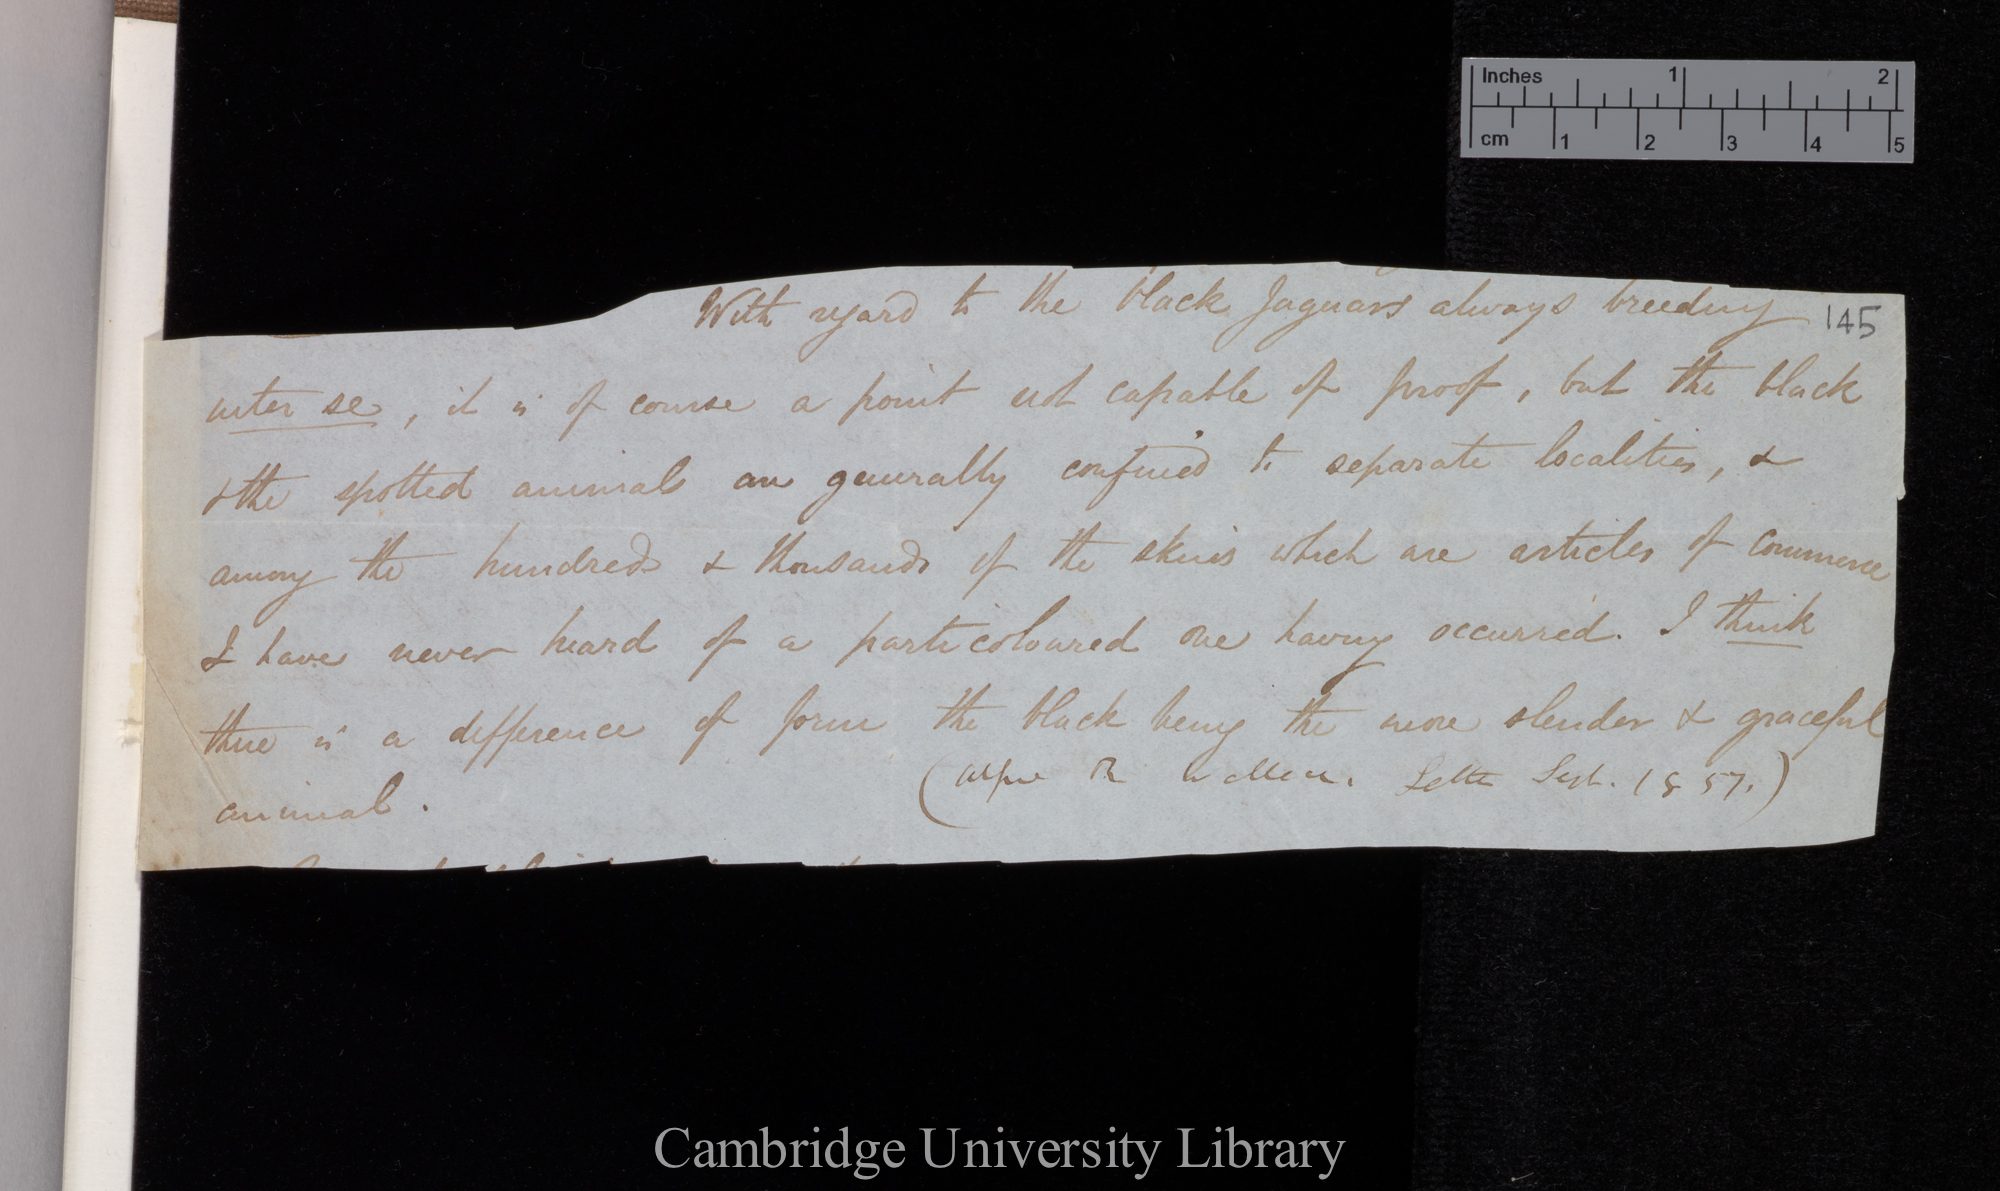 Inches 1 2
cm 1 2 3 4 5
With regard to the black Jaguars always breeding 145
inter se, it is of course a point not capable of proof, but the black
& the spotted animal are generally confined to separate localities, &
among the hundreds & thousands of the skins which are articles of commerce
I have never heard of a particoloured one having occurred. I think
there is a difference of form the black being the more slender & graceful
animal.
(Alfred R Wallace. Letter Sept. 1857.)
Cambridge University Library